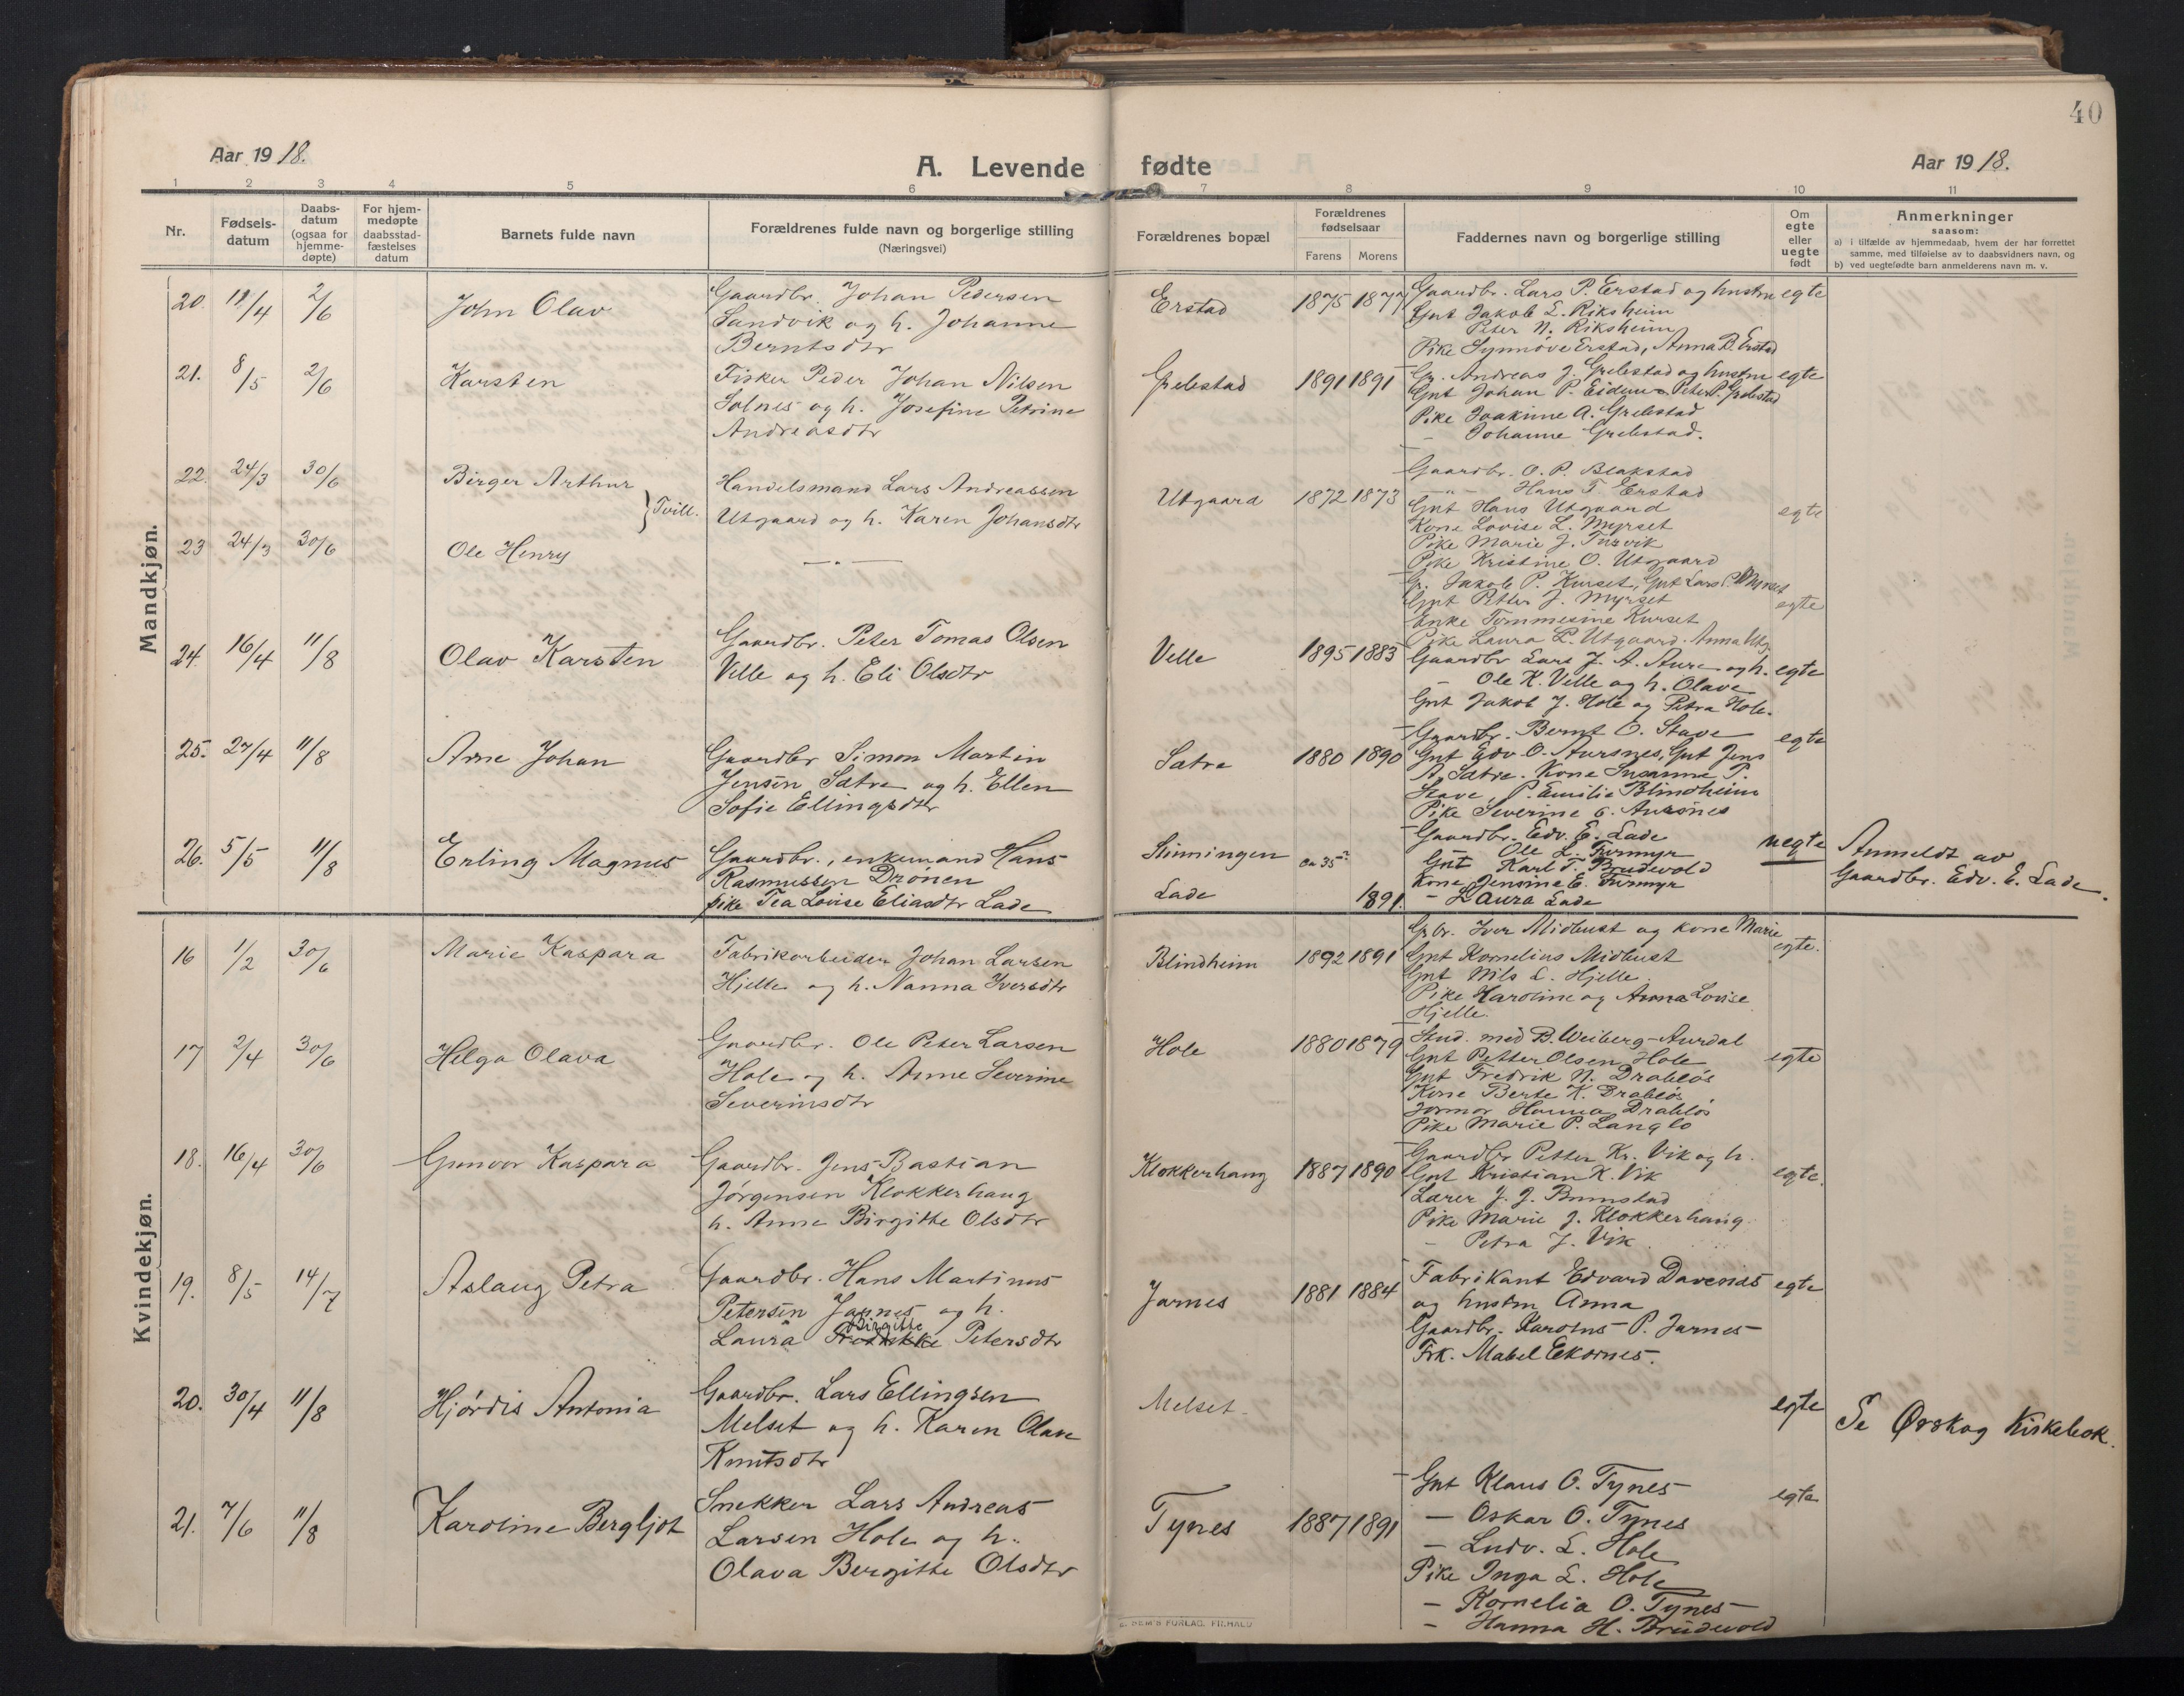 40
Aar 1918.
A. Levende fødte
Aar 1918.
1 2 3 4 5 6 7 8 9 10 11
Nr.
Fødsels-
datum
Daabs-
datum
(ogsaa for
hjemme-
døpte)
For hjem-
medøpte
daabsstad-
fæstelses
datum
Barnets fulde navn
Forældrenes fulde navn og borgerlige stilling
(Næringsvei)
Forældrenes bopæl
Forældrenes
fødselsaar
Farens Morens
Faddernes navn og borgerlige stilling
Om
egte
eller
uegte
født
Anmerkninger
saasom:
a) i tilfælde av hjemmedaab, hvem der har forrettet
samme, med tilføielse av to daabsvidners navn, og
b) ved uegtefødte barn anmelderens navn m. v.
Mandkjøn.
20. 2/6
John Olav
Gaardbr. Johan Pedersen
Sandvik og h. Johanne
Berntsdtr
Erstad 1875 1877
Gaardbr. Lars P. Erstad og hustru egte
Gut Jakob L. Riksheim
Peter N. Riksheim
Pike Synnøve Erstad, Anna B. Erstad
21. 8/5 2/6
Karsten
Fisker Peder Johan Nilsen
Solnes og h. Josefine Petrine
Andreasdtr
Grebstad 1891 1891
Gr. Andreas J. Grebstad og hustru egte
Gut Johan P. Eidem Peter P. Grebstad
Pike Joakime A. Grebstad
- Johanne Grebstad.
22. 24/3 30/6
Birger Arthur
} Tvill.
Handelsmand Lars Andreassen
Utgaard og h. Karen Johansdtr
Utgaard 1872 1873
Gaardbr. O. P. Blakstad
Hans T. Erstad
Gut Hans Utgaard egte
Kone Lovise L. Myrset
Pike Marie J. Turvik
Pike Kristine O. Utgaard
23 24/3 30/6
Ole Henry
— " —
Gr. Jakob P. Kurset, Gut Lars P. Myrset
Gut Petter J. Myrset egte
Enke Tommesine Kurset
Pike Laura L. Utgaard. Anna Utg.
24. 16/4 11/8
Olav Karsten
Gaardbr. Peter Tomas Olsen
Velle og h. Eli Olsdtr
Velle 1895 1883
Gaardbr Lars J. A. Aure og h. egte
- Ole K. Velle og h. Olave
Gut Jakob J. Hole og Petra Hole.
25. 27/4 11/8
Arne Johan
Gaardbr Simon Martin
Jensen Sætre og h. Ellen
Sofie Ellingsdtr
Sætre 1880 1890
Gaardbr. Bernt O. Stave egte
Gut Edv. O. Aursnes, Gut Jens
A. Sætre. Kone Susanne P.
Stave, P. Emilie Blindheim
Pike Severine E. Aursnes
26. 5/5 11/8
Erling Magnus
Gaardbr., enkemand Hans
Rasmussen Drönen
pike Tea Lovise Eliasdtr Lade
Stinningen ca 35 år
Lade 1891.
Gaardbr. Edv. E. Lade uegte
- Ole L. Turmyr
Gut Karl T. Brudevold
Kone Jensine E. Turmyr
- Laura Lade
Anmeldt av
Gaardbr. Edv. E. Lade.
Kvindekjøn.
16 1/2 30/6
Marie Kaspara
Fabrikarbeider Johan Larsen
Hjelle og h. Nanna Iversdtr
Blindheim 1892 1891
Grbr. Iver Midtbust og kone Marie
Gut Kornelius Midtbust egte.
Gut Nils L. Hjelle.
Pike Karoline og Anna Lovise
Hjelle.
17 2/4 30/6
Helga Olava
Gaardbr. Ole Peter Larsen
Hole og h. Anne Severine
Severinsdtr
Hole 1880 1879
Stud. med B. Weiberg-Aurdal
Gut Petter Olsen Hole egte
Gut Fredrik N. Drabløs
Kone Berte K. Drabløs
Jormor Hanna Drabløs
Pike Marie P. Langlo
18. 16/4 30/6
Gunvor Kaspara
Gaardbr. Jens Bastian
Jörgensen Klokkerhaug
h. Anne Birgitte Olsdtr
Klokkerhaug 1887 1890
Gaardbr Petter Kr. Vik og h.
Gut Kristian K. Vik egte.
Lærer J. J. Brunstad
Pike Marie J. Klokkerhaug
- Petra J. Vik
19. 8/5 14/7
Aslaug Petra
Gaardbr. Hans Martinus
Petersen Jarnes og h.
Birgitte
Laura Petersdtr
Jarnes 1881 1884
Fabrikant Edvard Davenas egte
og hustru Anna
Gaardbr. Karolus P. Jarnes
Frk. Mabel Ekornes.
20. 30/4 11/8
Hjördis Antonia
Gaardbr. Lars Ellingsen
Melset og h. Karen Olave
Knutsdtr
Melset
egte
Se Ørskog Kirkebok.
21. 7/6 11/8
Karoline Bergljot
Snekker Lars Andreas
Larsen Hole og h.
Olava Bergitte Olsdtr
Tynes 1887 1891
Gut Klaus O. Tynes egte
- Oskar O. Tynes
- Ludv. L. Hole
Pike Inga L. Hole
- Kornelia O. Tynes
- Hanna H. Brudevold
SEM'S FORLAG, FR.HALD